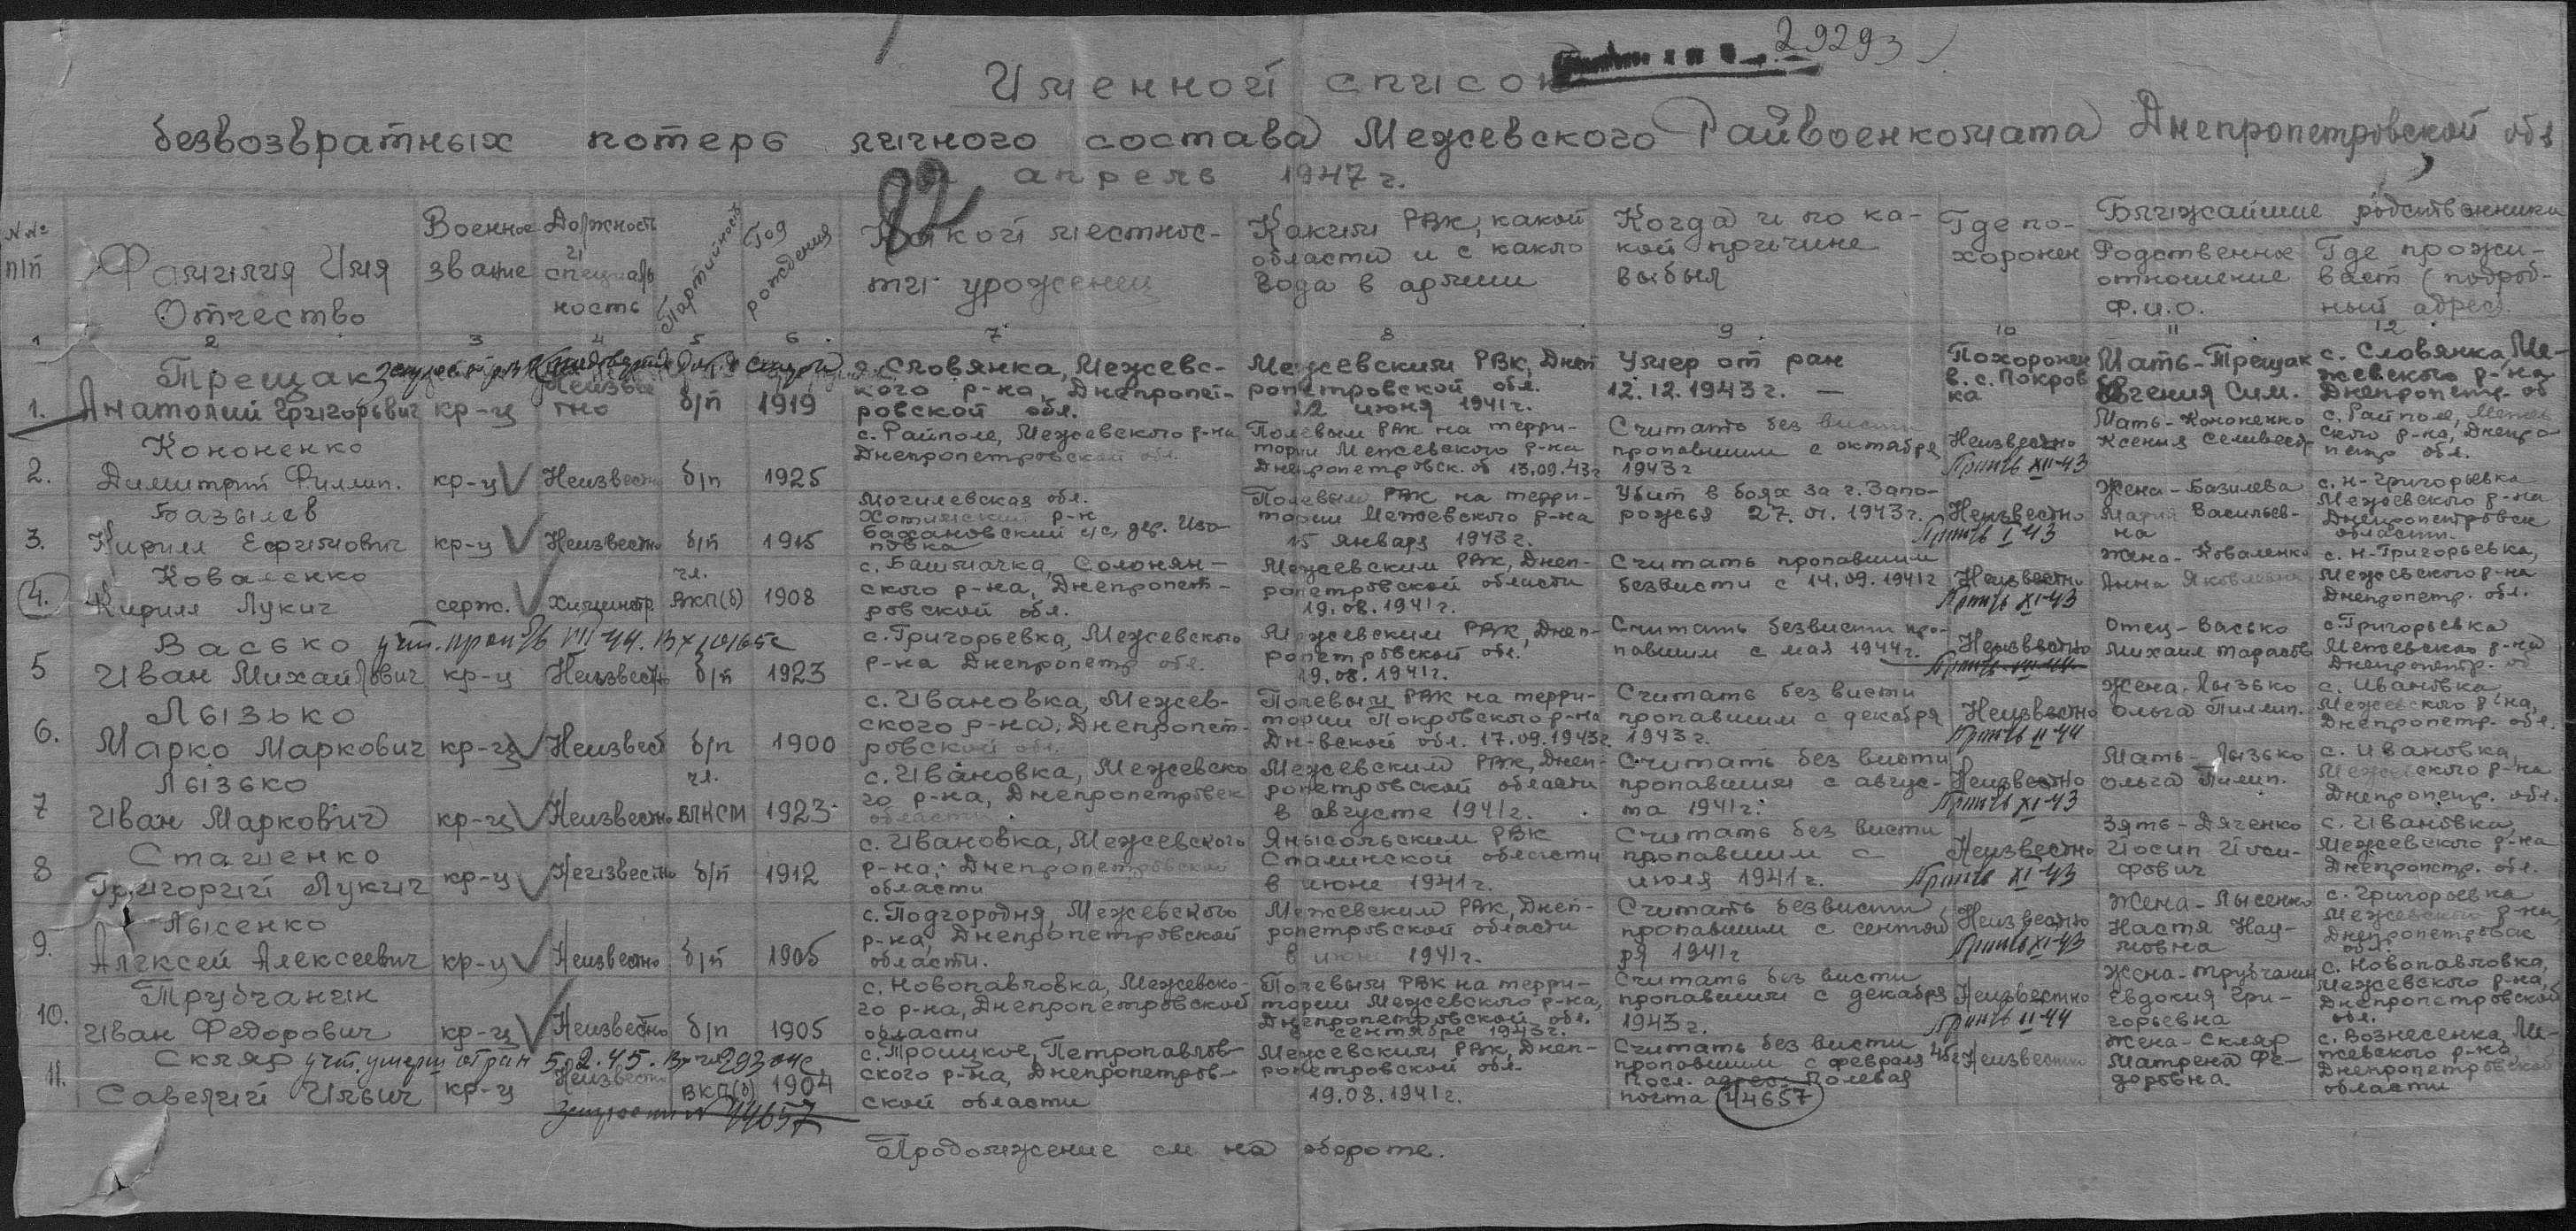 29293
Именной список
безвозвратных потерь личного состава Межевского Райвоенкомата Днепропетровской обл
апрель 1947 г.
82
№№ п/п
Фамилия Имя Отчество
Военное звание
Должность и специальность
Партийность
Год рождения
Какой местности уроженец
Каким РВК, какой области и с какого года в армии
Когда и по какой причине выбыл
Где похоронен
Ближайшие родственники
Родственное отношение Ф.И.О.
Где проживает (подробный адрес)
1 2 3 4 5 6 7 8 9 10 11 12
1. Трещак Анатолий Григорьвич кр-ц Неизвестно б/п 1919 с. Словянка, Межевского р-на, Днепропетровской обл. Межевским РВК, Днепропетровской обл. 22 июня 1941 г. Умер от ран 12.12.1943 г. — Похоронен в. с. Покровка Мать-Трещак Евгения Сим. с. Словянка, Межевского р-на Днепропетр. об
2. Кононенко Димитрий Филип. кр-ц Неизвестн б/п 1925 с. Райполе, Межевского р-на Днепропетровской обл. Полевым РВК на территории Межевского р-на Днепропетровск. об 13.09.43г Считать без вести пропавшим с октября 1943 г Неизвестно Проп б/в XII-43 Мать-Кононенко Ксения Селивестр с. Райполе, Межевского р-на, Днепропетр обл.
3. Базылев Кирилл Ефимович кр-ц Неизвестно б/п 1915 Могилевская обл. Хотимский р-н Бахановский с/с, дер. Изоповка Полевым РВК на территории Межевского р-на 15 января 1943 г. Убит в боях за г. Запорожья 27.01.1943 г. Неизвестно Проп б/в I-43 Жена-Базилева Мария Васильевна с. Н-Григорьевка Межевского р-на Днепропетровск области.
4. Коваленко Кирилл Лукич серж. Химинстр чл. ВКП(б) 1908 с. Башмачка, Солонянского р-на, Днепропетровской обл. Межевским РВК, Днепропетровской области 19.08.1941 г. Считать пропавшим безвисти с 14.09.1941 г Неизвестно Проп б/в XI-43 Жена-Коваленко Анна Яковлевна с. Н-Григорьевка, Межевского р-на Днепропетр. обл.
5 Васько учт. проп б/в VII-44. Иван Михайлович кр-ц Неизвестно б/п 1923 с. Григорьевка, Межевского р-на Днепропетр обл. Межевским РВК, Днепропетровской обл. 19.08.1941 г. Считать безвисти пропавшим с мая 1944 г. Неизвестно Отец-Васько Михаил Тарасов с Григорьевка Межевского р-на Днепропетр. об
6. Лызько Марко Маркович кр-ц Неизвест б/п 1900 с. Ивановка, Межевского р-на, Днепропетровской обл. Полевым РВК на территории Покровского р-на Дн-вской обл. 17.09.1943 г. Считать без висти пропавшим с декабря 1943 г. Неизвестно Проп б/в II-44 Жена-Лызько Ольга Пилип. с. Ивановка, Межевского р-на, Днепропетр. обл.
7 Лызько Иван Маркович кр-ц Неизвестно чл. ВЛКСМ 1923 с. Ивановка, Межевского р-на, Днепропетровск области Межевским РВК, Днепропетровской области в августе 1941 г. Считать без висти пропавшим с августа 1941 г. Неизвестно Проп б/в XI-43 Мать-Лызько Ольга Пилип. с. Ивановка, Межевского р-на Днепропетр. обл.
8 Сташенко Григорий Лукич кр-ц Неизвестно б/п 1912 с. Ивановка, Межевского р-на, Днепропетровской области Янысольским РВК Сталинской области в июне 1941 г. Считать без висти пропавшим с июля 1941 г. Неизвестно Проп б/в XI-43 Зять-Дяченко Иосип Иосифович с. Ивановка, Межевского р-на Днепропетр. обл.
9. Лысенко Алексей Алексеевич кр-ц Неизвестно б/п 1905 с. Подгородня, Межевского р-на, Днепропетровской области. Межевским РВК, Днепропетровской области в июне 1941 г. Считать безвисти пропавшим с сентября 1941 г Неизвестно Проп б/в XI-43 Жена-Лысенко Настя Наумовна с. Григорьевка Межевского р-на, Днепропетровск обл.
10. Трубчанин Иван Федорович кр-ц Неизвестно б/п 1905 с. Новопавловка, Межевского р-на, Днепропетровской области Полевым РВК на территории Межевского р-на, Днепропетровской обл. в сентябре 1943 г. Считать без висти пропавшим с декабря 1943 г. Неизвестно Проп б/в II-44 Жена-Трубчанин Евдокия Григорьевна с. Новопавловка, Межевского р-на, Днепропетровской обл.
11. Скляр учт. умерш от ран 5.2.45. Савелий Ильич кр-ц Неизвестн ВКП(б) 1904 с. Троицкое, Петропавловского р-на, Днепропетровской области Межевским РВК, Днепропетровской обл. 19.08.1941 г. Считать без висти пропавшим с февраля 45г Посл. адрес Полевая почта 44657 Неизвестно Жена-Скляр Матрена Федоровна. с. Вознесенка, Межевского р-на, Днепропетровской области
44657
Продолжение см на обороте.